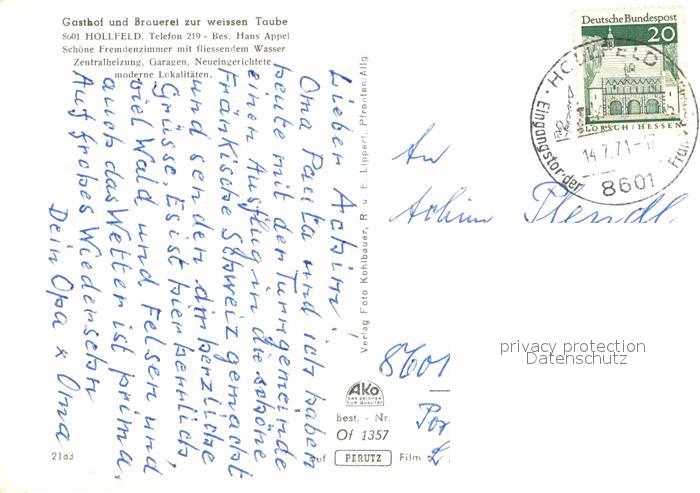 Gasthof und Brauerei zur weissen Taube
8601 HOLLFELD, Telefon 219 - Bes. Hans Appel
Schöne Fremdenzimmer mit fliessendem Wasser
Zentralheizung, Garagen, Neueingerichtete
moderne Lokalitäten.
Lieber Achim!
Oma Paula und ich haben
heute mit der Turngemeinde
einen Ausflug in die schöne
Fränkische Schweiz gemacht
und senden dir herzliche
Grüsse. Es ist hier herrlich,
viel Wald und Felsen und
auch das Wetter ist prima.
Auf frohes Wiedersehn
Dein Opa x Oma
2183
Verlag Foto Kohlbauer, R. u. E. Lippert, Pfronten-Allg
AKO
DAS ZEICHEN
FÜR QUALITÄT
Best. - Nr.
Of 1357
auf PERUTZ Film
Deutsche Bundespost
20
LORSCH/HESSEN
HOLLFELD
14.7.71-17
8601
Eingangstor der
An
Achim
8601
privacy protection
Datenschutz